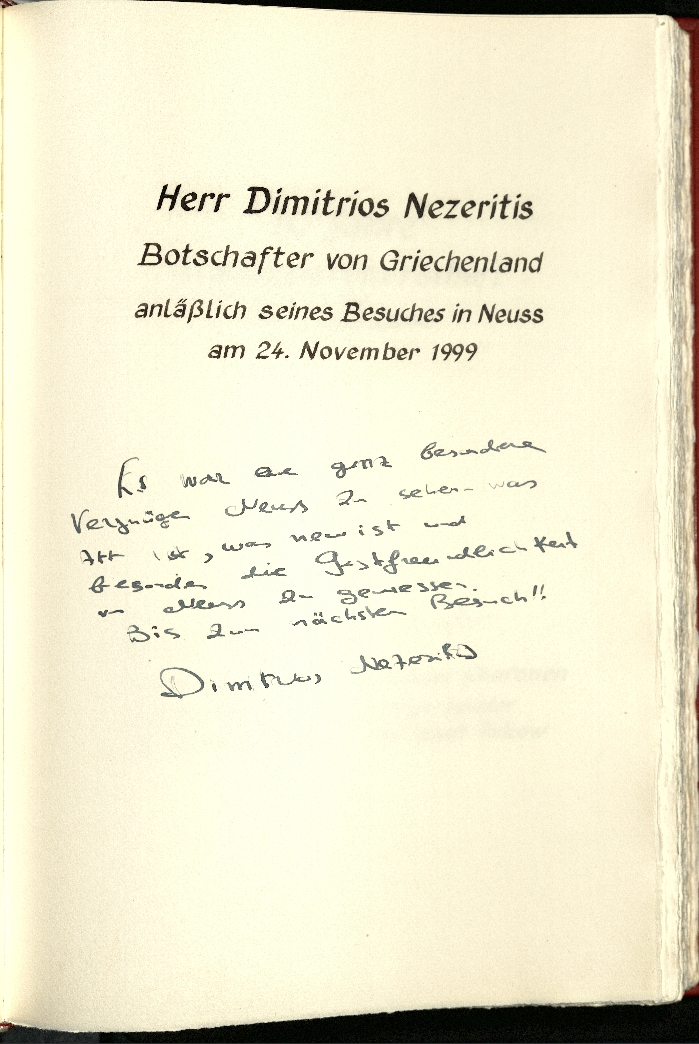 Herr Dimitrios Nezeritis
Botschafter von Griechenland
anläßlich seines Besuches in Neuss
am 24. November 1999
Es war ein ganz besonderes
Vergnügen Neuss zu sehen was
Alt ist, was new ist und
besonders die Gastfreundlichkeit
in Neuss zu geniessen.
Bis zum nächsten Besuch!!
Dimitrios Nezeritis